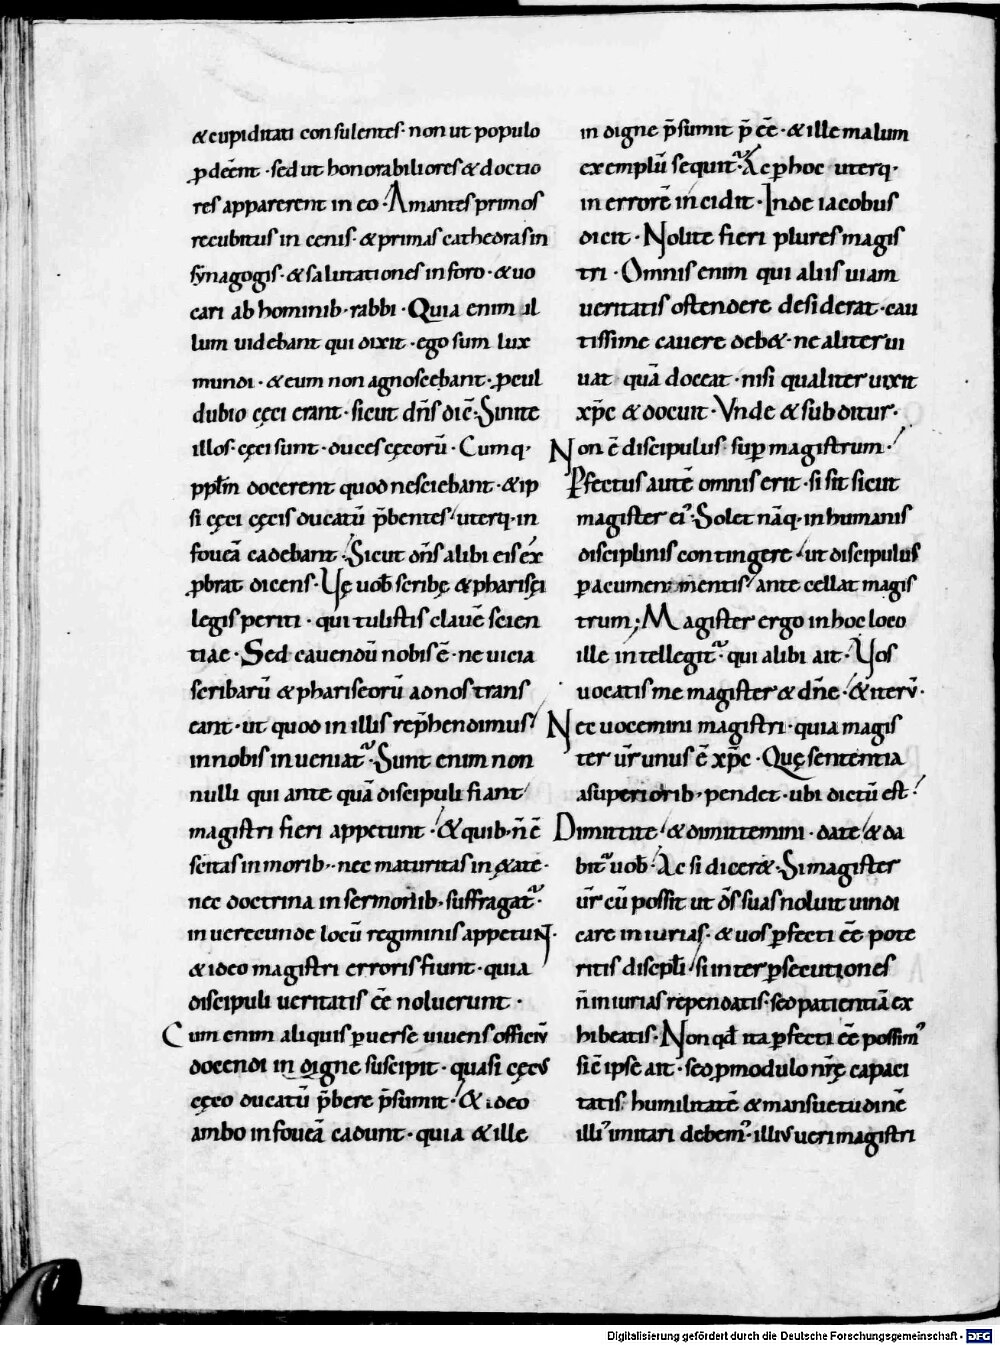 &cupiditati consulentes· non ut populo
ꝓdeēnt · sed ut honorabiliores & doctio
res apparerent in eo · Amantes primos
recubitus in cenis · & primas cathedras in
synagogis · & salutationes in foro · & uo
cari ab hominib· rabbi · Quia enim il
lum uidebant qui dixit · ego sum lux
mundi · & eum non agnoscebant · ꝓcul
dubio cęci erant · sicut dn̄s dic̄ · Sinite
illos · cęci sunt · duces cęcorū · Cumq·
ppl̄m docerent quod nesciebant · & ip
si cęci cęcis ducatū p̄bentes uterq· in
foueā cadebant · Sicut dn̄s alibi eis ex
ꝓbrat dicens · Vę uob̄ scribę & pharisęi
legis periti · qui tulistis clauē scien
tiae · Sed cauendū nobis ē · ne uicia
scribarū & phariseorū ad nos trans
eant · ut quod in illis rep̄hendimus
in nobis inueniat᷑ · Sunt enim non
nulli qui ante quā discipuli fiant
magistri fieri appetunt · & quib· n̄ ē
scitas in morib· · nec maturitas in ętate ·
nec doctrina in sermonib· suffragat᷑ ·
inuerecunde locū regiminis appetunt ·
& ideo magistri erroris fiunt · quia
discipuli ueritatis ēē noluerunt ·
Cum enim aliquis ꝑuerse uiuens officiū
docendi indigne suscipit · quasi cęcus
cęco ducatū p̄bere p̄sumit · & ideo
ambo in foueā cadunt · quia & ille
indigne p̄sumit p̄ēē · & ille malum
exemplū sequit᷑ · Ac ꝑ hoc uterq·
in errorē incidit · Inde iacobus
dicit · Nolite fieri plures magis
tri · Omnis enim qui aliis uiam
ueritatis ostendere desiderat · cau
tissime cauere deb& · ne aliter ui
uat quā doceat · nisi qualiter uixit
xp̄c & docuit · Vnde & subditur ·
Non ē discipulus sup magistrum ·
Pfectus autē omnis erit · si sit sicut
magister eiꝰ · Solet nāq· in humanis
disciplinis contingere · ut discipulus
ꝑ acumen mentis antecellat magis
trum; Magister ergo in hoc loco
ille intellegit᷑ · qui alibi ait · Vos
uocatis me magister & dn̄e · & iterū ·
Nec uocemini magistri · quia magis
ter ur̄ unus ē xp̄c · Quę sententia
a superiorib· pendet · ubi dictū est
Dimittite & dimittemini · date & da
bit᷑ uob̄ · Ac si dicer& · Si magister
ur̄ cū possit ut dō̄s suas noluit uindi
care iniurias · & uos ꝑfecti ēē pote
ritis discipl̄i · si inter ꝑsecutiones
n̄ iniurias rependatis · sed patientiā ex
hibeatis · Non qd̄ ita ꝑfecti ēē possimꝰ
sic̄ ipse ait · sed ꝓ modulo nr̄ę capaci
tatis humilitatē & mansuetudinē
illiꝰ imitari debemꝰ · illiꝰ ueri magistri
Digitalisierung gefördert durch die Deutsche Forschungsgemeinschaft - DFG